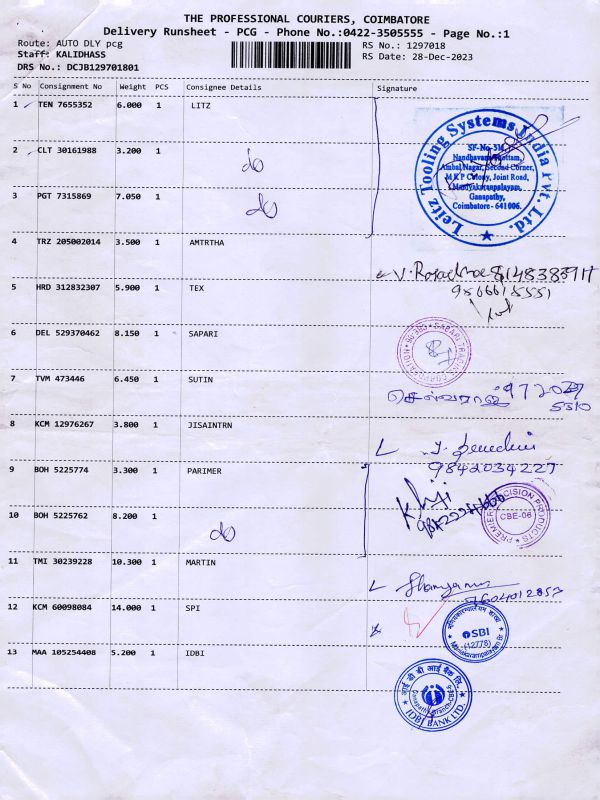 THE PROFESSIONAL COURIERS, COIMBATORE
Delivery Runsheet - PCG - Phone No.:0422-3505555 - Page No.:1
Route: AUTO DLY pcg
RS No.: 1297018
Staff: KALIDHASS
RS Date: 28-Dec-2023
DRS No.: DCJB129701801
S No Consignment No Weight PCS Consignee Details Signature
1 TEN 7655352 6.000 1 LITZ
Leitz Tooling Systems India Pvt. Ltd.
Nandhavana Thottam,
Ambal Nagar, Second Corner,
M K P Colony, Joint Road,
Maniyakarampalayam,
Ganapathy,
Coimbatore - 641 006.
2 CLT 30161988 3.200 1
do
3 PGT 7315869 7.050 1
do
4 TRZ 205002014 3.500 1 AMTRTHA
5 HRD 312832307 5.900 1 TEX
6 DEL 529370462 8.150 1 SAPARI
7 TVM 473446 6.450 1 SUTIN
செல்வராஜ்
8 KCM 12976267 3.800 1 JISAINTRN
9842034227
9 BOH 5225774 3.300 1 PARIMER
PREMIER PRECISION PRODUCTS
CBE-06
10 BOH 5225762 8.200 1
do
11 TMI 30239228 10.300 1 MARTIN
12 KCM 60098084 14.000 1 SPI
SBI
(12778)
13 MAA 105254408 5.200 1 IDBI
आई डी बी आई बैंक लि.
IDBI BANK LTD.